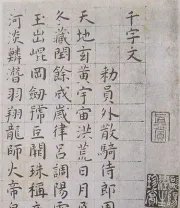 千字文
勅員外散騎侍郎
天地玄黃宇宙洪荒日月
冬藏閏餘成歲律呂調陽
玉出崐岡劍號巨闕珠稱
河淡鱗潛羽翔龍師火帝